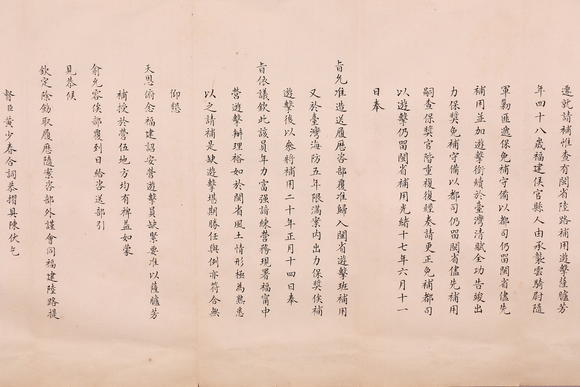 遷就請補惟查有閩省陸路補用遊擊薩臚芳
年四十八歲福建侯官縣人由承襲雲騎尉隨
軍勦匪遞保免補守備以都司仍留閩省儘先
補用並加遊擊銜續於臺灣清賦全功告竣出
力保獎免補守備以都司仍留閩省儘先補用
嗣查保獎官階重複復經奏請更正免補都司
以遊擊仍留閩省補用光緒十七年六月十一
日奉
旨允准造送履歷咨部覆准歸入閩省遊擊班補用
又於臺灣海防五年限滿案內出力保獎俟補
遊擊後以參將補用二十年正月十四日奉
旨依議欽此該員年力富强諳練營務現署福寧中
營遊擊辦理裕如於閩省風土情形極為熟悉
以之請補是缺遊擊堪期勝任與例亦符合無
仰懇
天恩俯念福建詔安營遊擊員缺緊要准以薩臚芳
補授於營伍地方均有裨益如蒙
俞允容俟部覆到日給咨送部引
見恭候
欽定除飭取履歷隨案咨部外謹會同福建陸路提
督臣黃少春合詞恭摺具陳伏乞